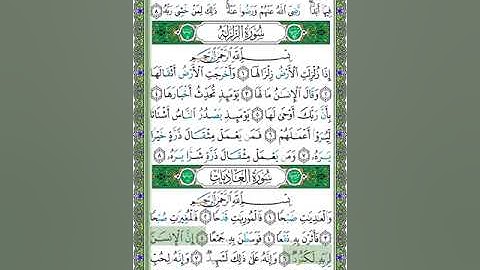 فِيهَآ أَبَدًا ۖ رَّضِىَ ٱللَّهُ عَنْهُمْ وَرَضُوا۟ عَنْهُ ۚ ذَٰلِكَ لِمَنْ خَشِىَ رَبَّهُۥ ٨
سُورَةُ الزَّلْزَلَةِ
بِسْمِ ٱللَّهِ ٱلرَّحْمَٰنِ ٱلرَّحِيمِ
إِذَا زُلْزِلَتِ ٱلْأَرْضُ زِلْزَالَهَا ١ وَأَخْرَجَتِ ٱلْأَرْضُ أَثْقَالَهَا
٢ وَقَالَ ٱلْإِنسَٰنُ مَا لَهَا ٣ يَوْمَئِذٍ تُحَدِّثُ أَخْبَارَهَا ٤
بِأَنَّ رَبَّكَ أَوْحَىٰ لَهَا ٥ يَوْمَئِذٍ يَصْدُرُ ٱلنَّاسُ أَشْتَاتًا
لِّيُرَوْا۟ أَعْمَٰلَهُمْ ٦ فَمَن يَعْمَلْ مِثْقَالَ ذَرَّةٍ خَيْرًا
يَرَهُۥ ٧ وَمَن يَعْمَلْ مِثْقَالَ ذَرَّةٍ شَرًّا يَرَهُۥ ٨
سُورَةُ العَادِيَاتِ
بِسْمِ ٱللَّهِ ٱلرَّحْمَٰنِ ٱلرَّحِيمِ
وَٱلْعَٰدِيَٰتِ ضَبْحًا ١ فَٱلْمُورِيَٰتِ قَدْحًا ٢ فَٱلْمُغِيرَٰتِ صُبْحًا
٣ فَأَثَرْنَ بِهِۦ نَقْعًا ٤ فَوَسَطْنَ بِهِۦ جَمْعًا ٥ إِنَّ ٱلْإِنسَٰنَ
لِرَبِّهِۦ لَكَنُودٌ ٦ وَإِنَّهُۥ عَلَىٰ ذَٰلِكَ لَشَهِيدٌ ٧ وَإِنَّهُۥ لِحُبِّ